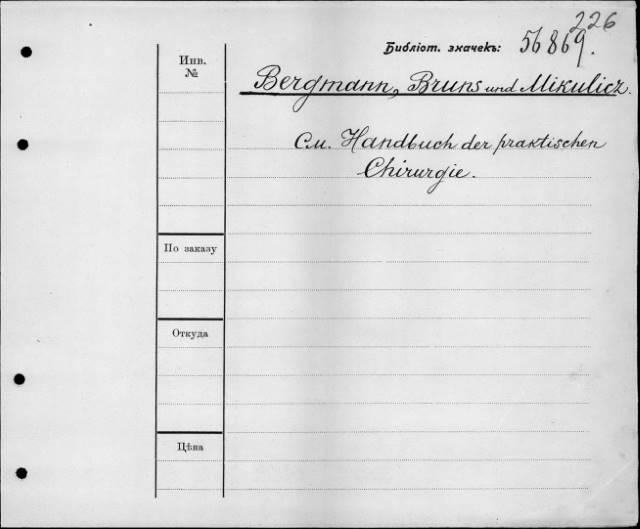 226
Библіот. значекъ: 56869.
Инв.
№
Bergmann, Bruns und Mikulicz.
См. Handbuch der praktischen
Chirurgie.
По заказу
Откуда
Цѣна